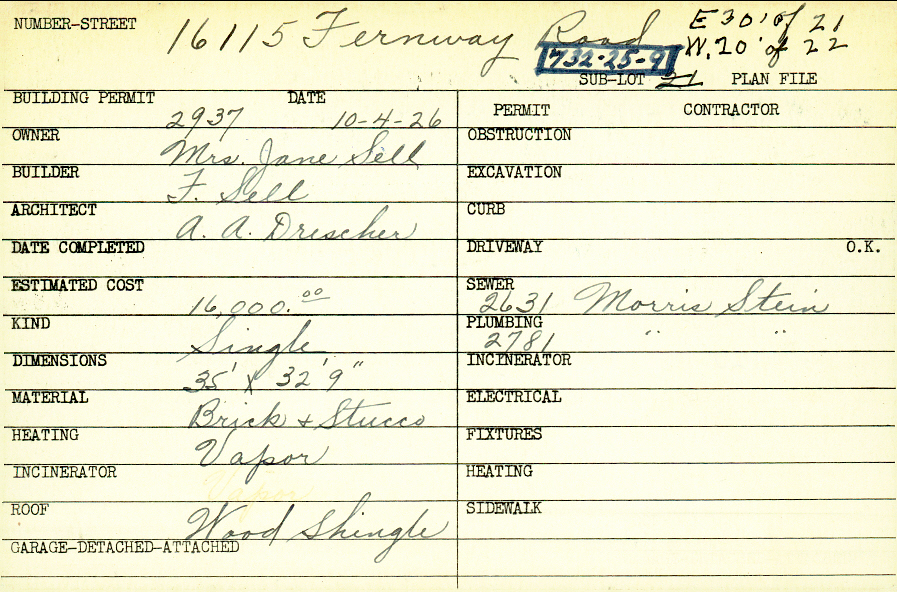 NUMBER-STREET 16115 Fernway Road E 30' of 21
732-25-9 W. 20' of 22
SUB-LOT 21 PLAN FILE
BUILDING PERMIT 2937 DATE 10-4-26
OWNER Mrs. Jane Sell
BUILDER F. Sell
ARCHITECT A. A. Drescher
DATE COMPLETED
ESTIMATED COST 16,000.00
KIND Single
DIMENSIONS 35' x 32'9"
MATERIAL Brick + Stucco
HEATING Vapor
INCINERATOR Vapor
ROOF Wood Shingle
GARAGE-DETACHED-ATTACHED
PERMIT CONTRACTOR
OBSTRUCTION
EXCAVATION
CURB
DRIVEWAY O.K.
SEWER 2631 Morris Stein
PLUMBING 2781 " "
INCINERATOR
ELECTRICAL
FIXTURES
HEATING
SIDEWALK